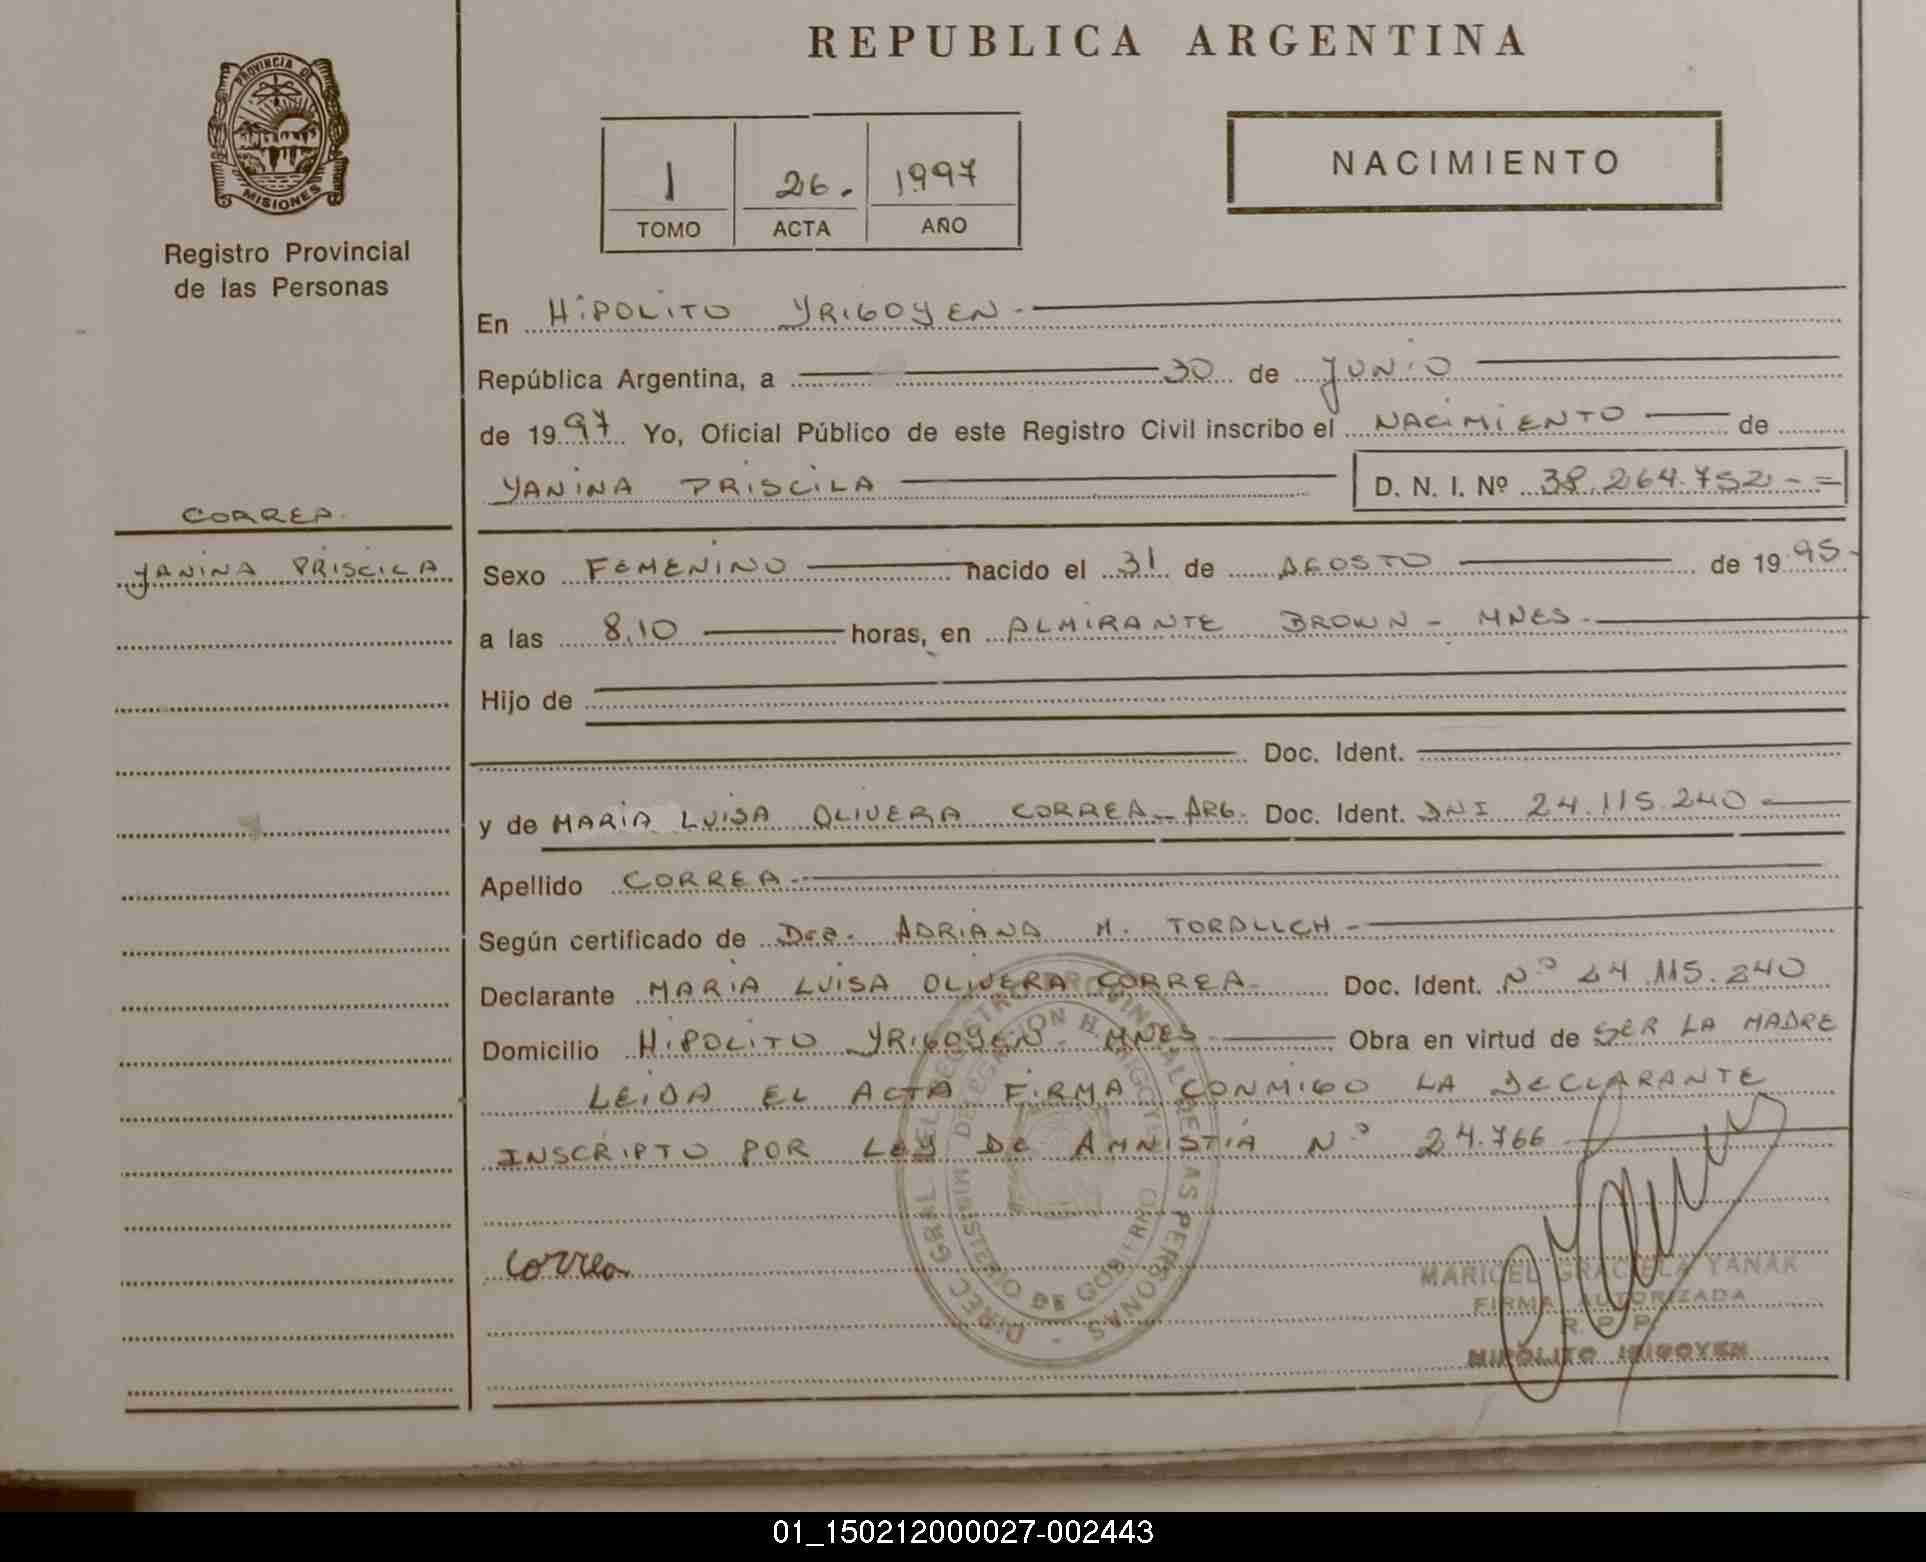 REPUBLICA ARGENTINA
PROVINCIA DE
MISIONES
Registro Provincial
de las Personas
1 26. 1997
TOMO ACTA AÑO
NACIMIENTO
En HIPOLITO YRIGOYEN.
República Argentina, a 30 de JUNIO
de 1997 Yo, Oficial Público de este Registro Civil inscribo el NACIMIENTO de
YANINA PRISCILA D. N. I. Nº 38.264.752 - =
CORREA.
YANINA PRISCILA
Sexo FEMENINO nacido el 31 de AGOSTO de 1995.
a las 8,10 horas, en ALMIRANTE BROWN - MNES.
Hijo de
Doc. Ident.
y de MARIA LUISA OLIVERA CORREA - ARG. Doc. Ident. DNI 24.115.240
Apellido CORREA.
Según certificado de Dra. ADRIANA M.
Declarante MARIA LUISA OLIVERA CORREA. Doc. Ident. Nº 24.115.240
Domicilio HIPOLITO YRIGOYEN - MNES Obra en virtud de SER LA MADRE
LEIDA EL ACTA FIRMA CONMIGO LA DECLARANTE
INSCRIPTO POR LEY DE AMNISTIA Nº 24.766
Correa
MINISTERIO DE GOBIERNO
MARICEL GRACIELA YANAK
FIRMA AUTORIZADA
R. P. P.
HIPOLITO IRIGOYEN
01_150212000027-002443